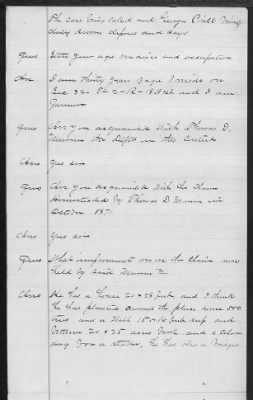 The case being called and George Cirell being
duly sworn deposes and says
Ques State your age residence and occupation
Ans I am thirty years of age I reside on
Sec 32 T 2 R 18 West and I am
farmer
Ques Are you acquainted with Thomas D.
the Deft in this
Ans Yes sir
Ques Are you acquainted with the Claim
Homesteaded by Thomas D. in
October 1871
Ans Yes sir
Ques What improvements on the claim now
held by said
Ans He has a house 20 x 28 feet and I think
he has planted around the place some 500
trees and a Well feet deep and
between 20 & 25 acres broke and a
dug for a stable, he has also a bridge